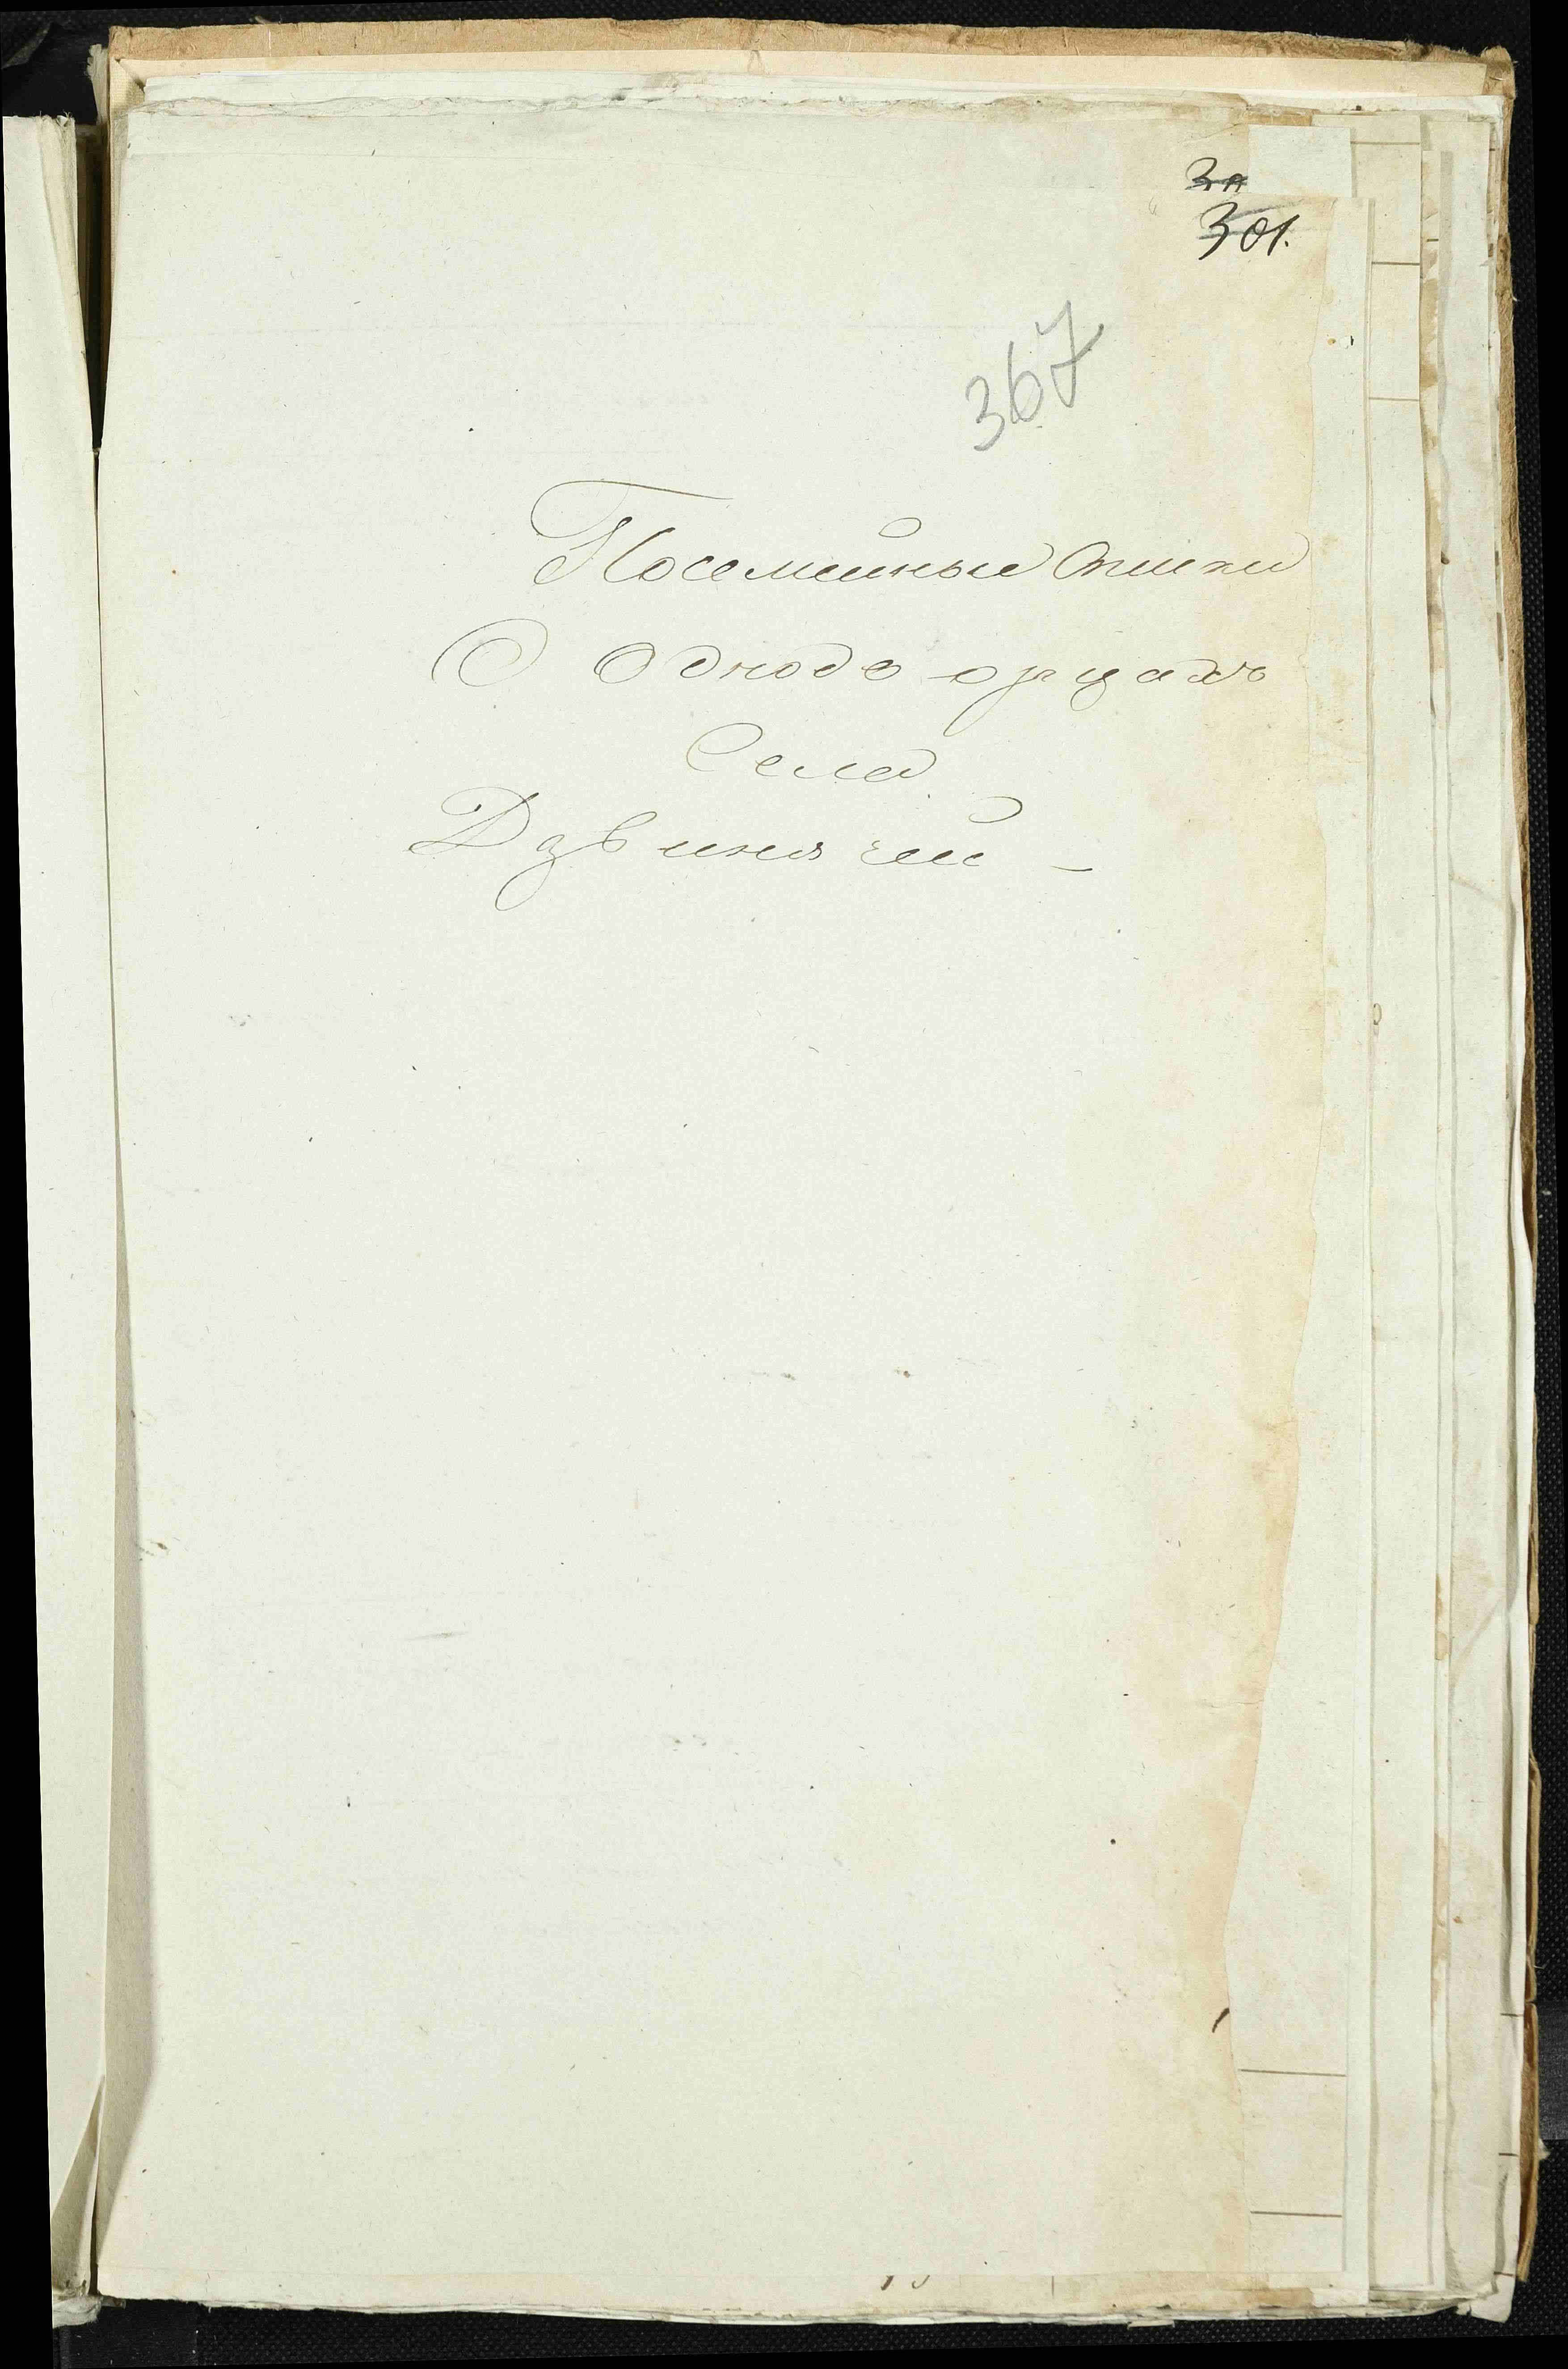 301.
367
Посемейные списки
О Однодворцахъ
Села
Дзвинячей –